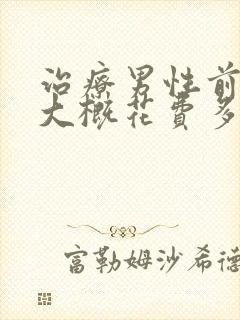 治疗男性前
大概花费多
富勒姆沙希德